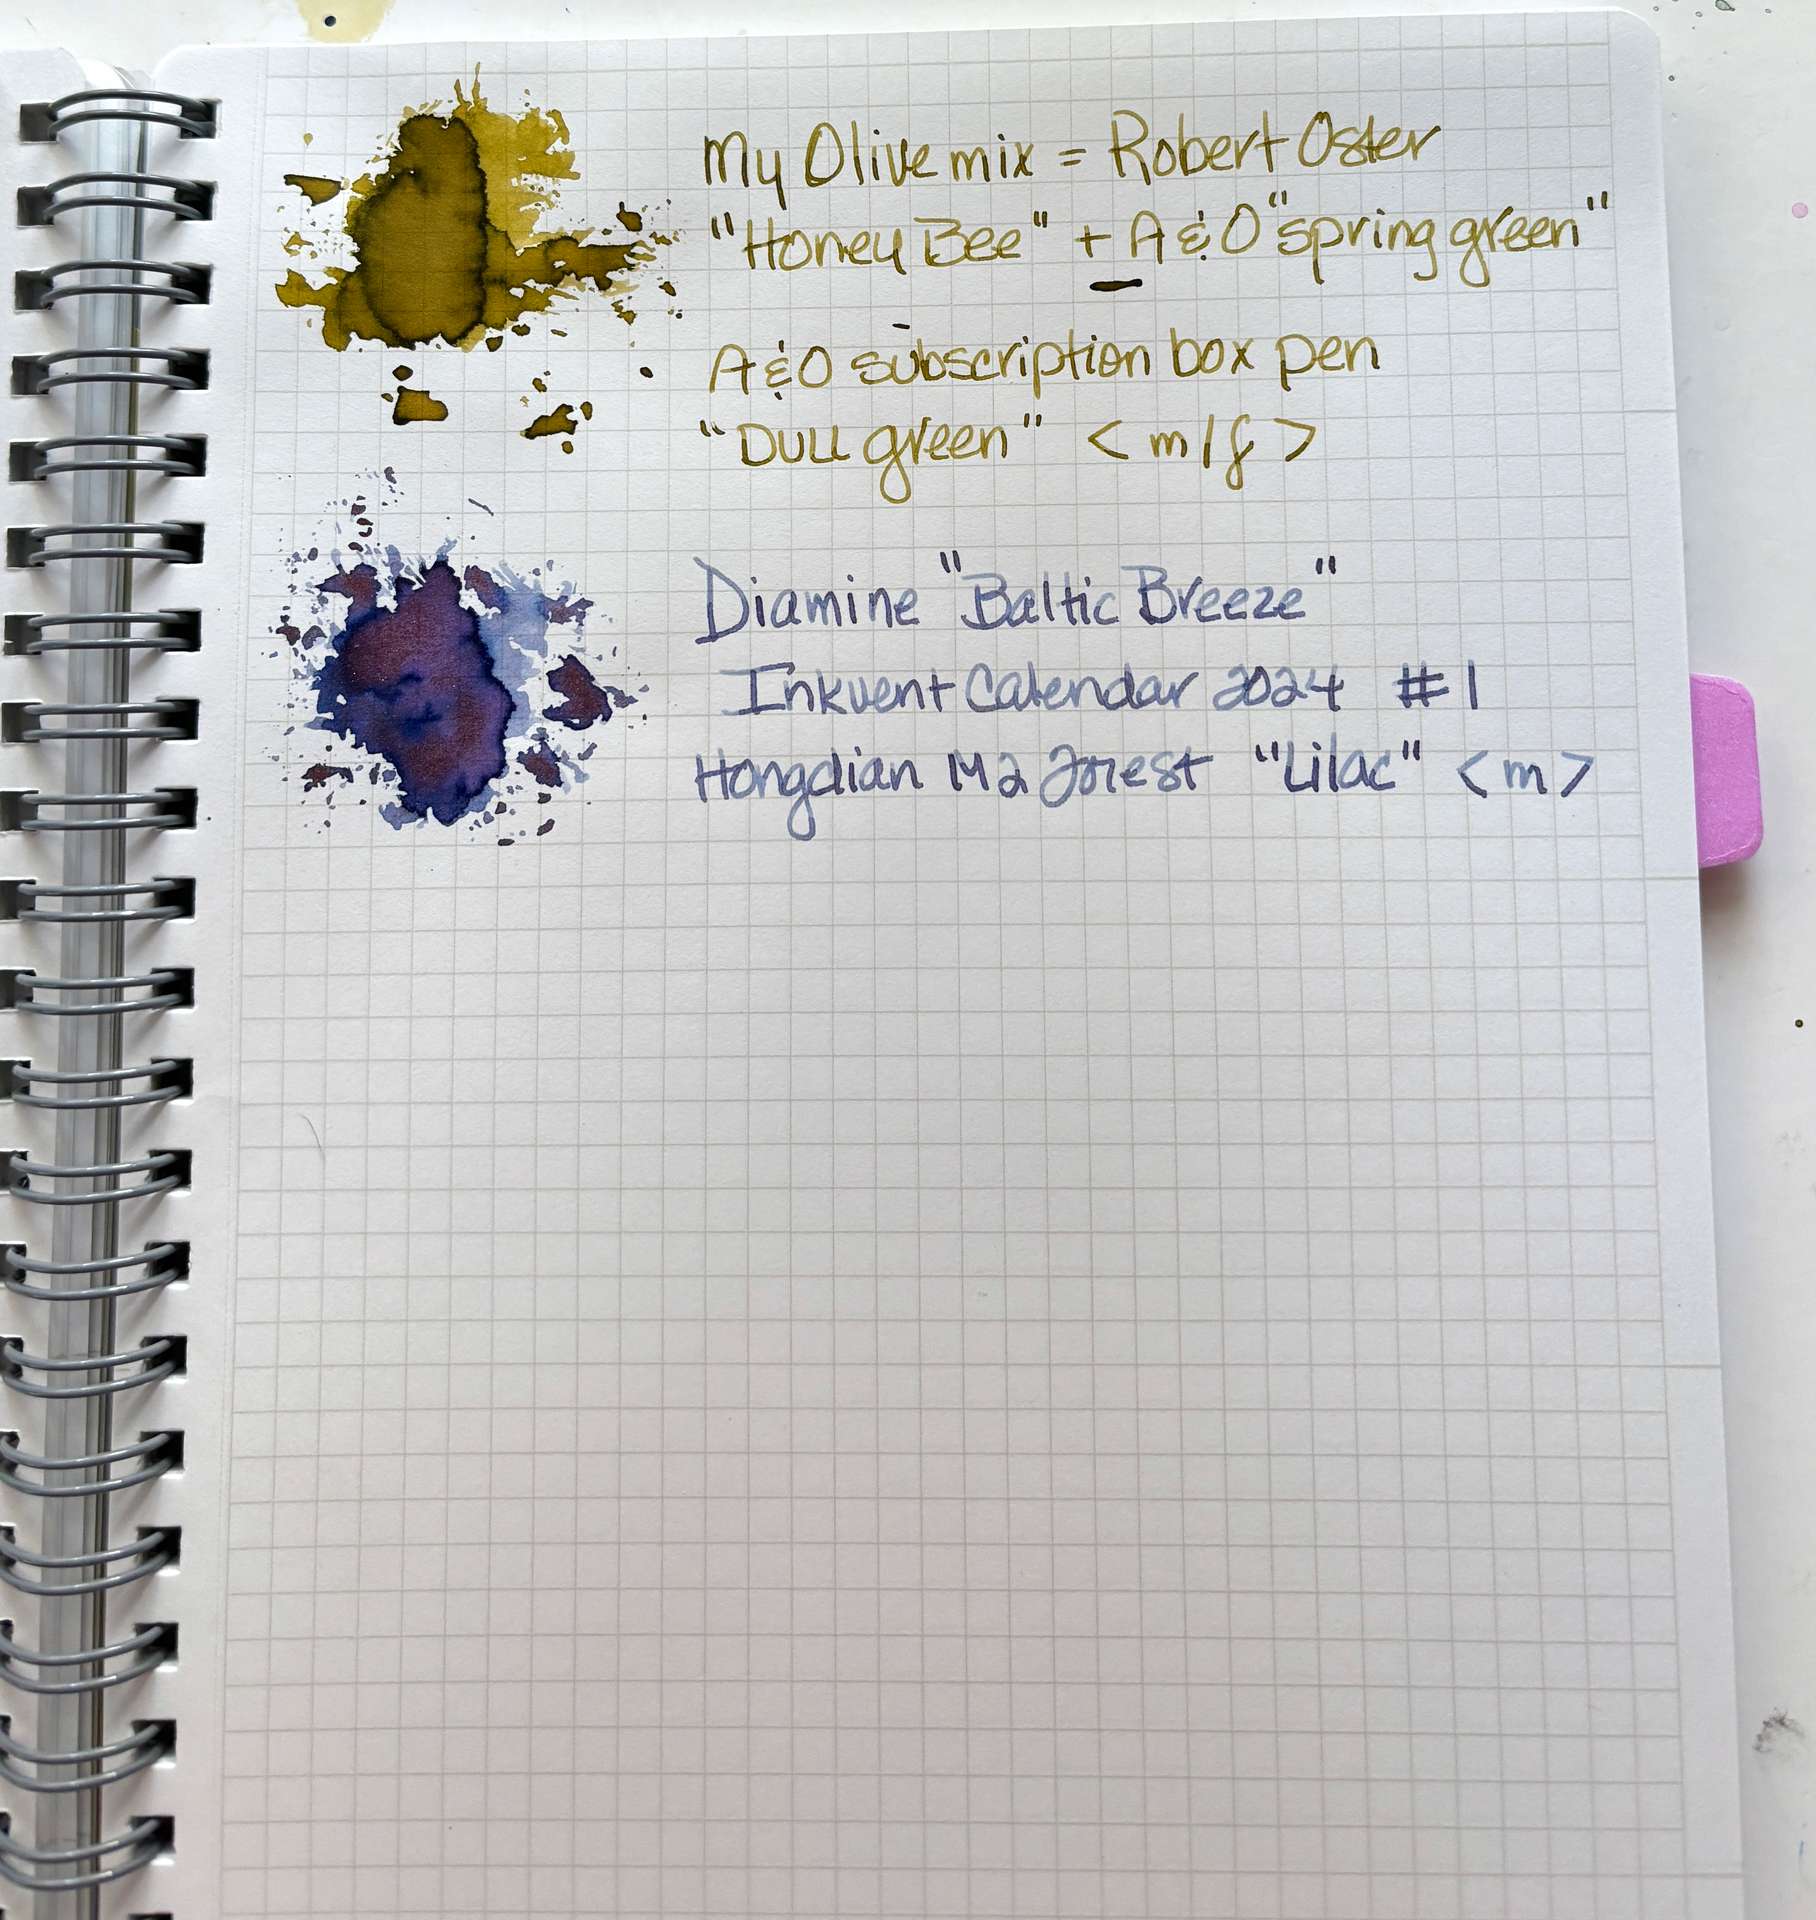 My Olive mix = Robert Oster
"Honey Bee" + A & O "spring green"
A & O subscription box pen
"Dull green" < m/f >
Diamine "Baltic Breeze"
Inkvent Calendar 2024 #1
Hongdian M2 Forest "Lilac" <m>